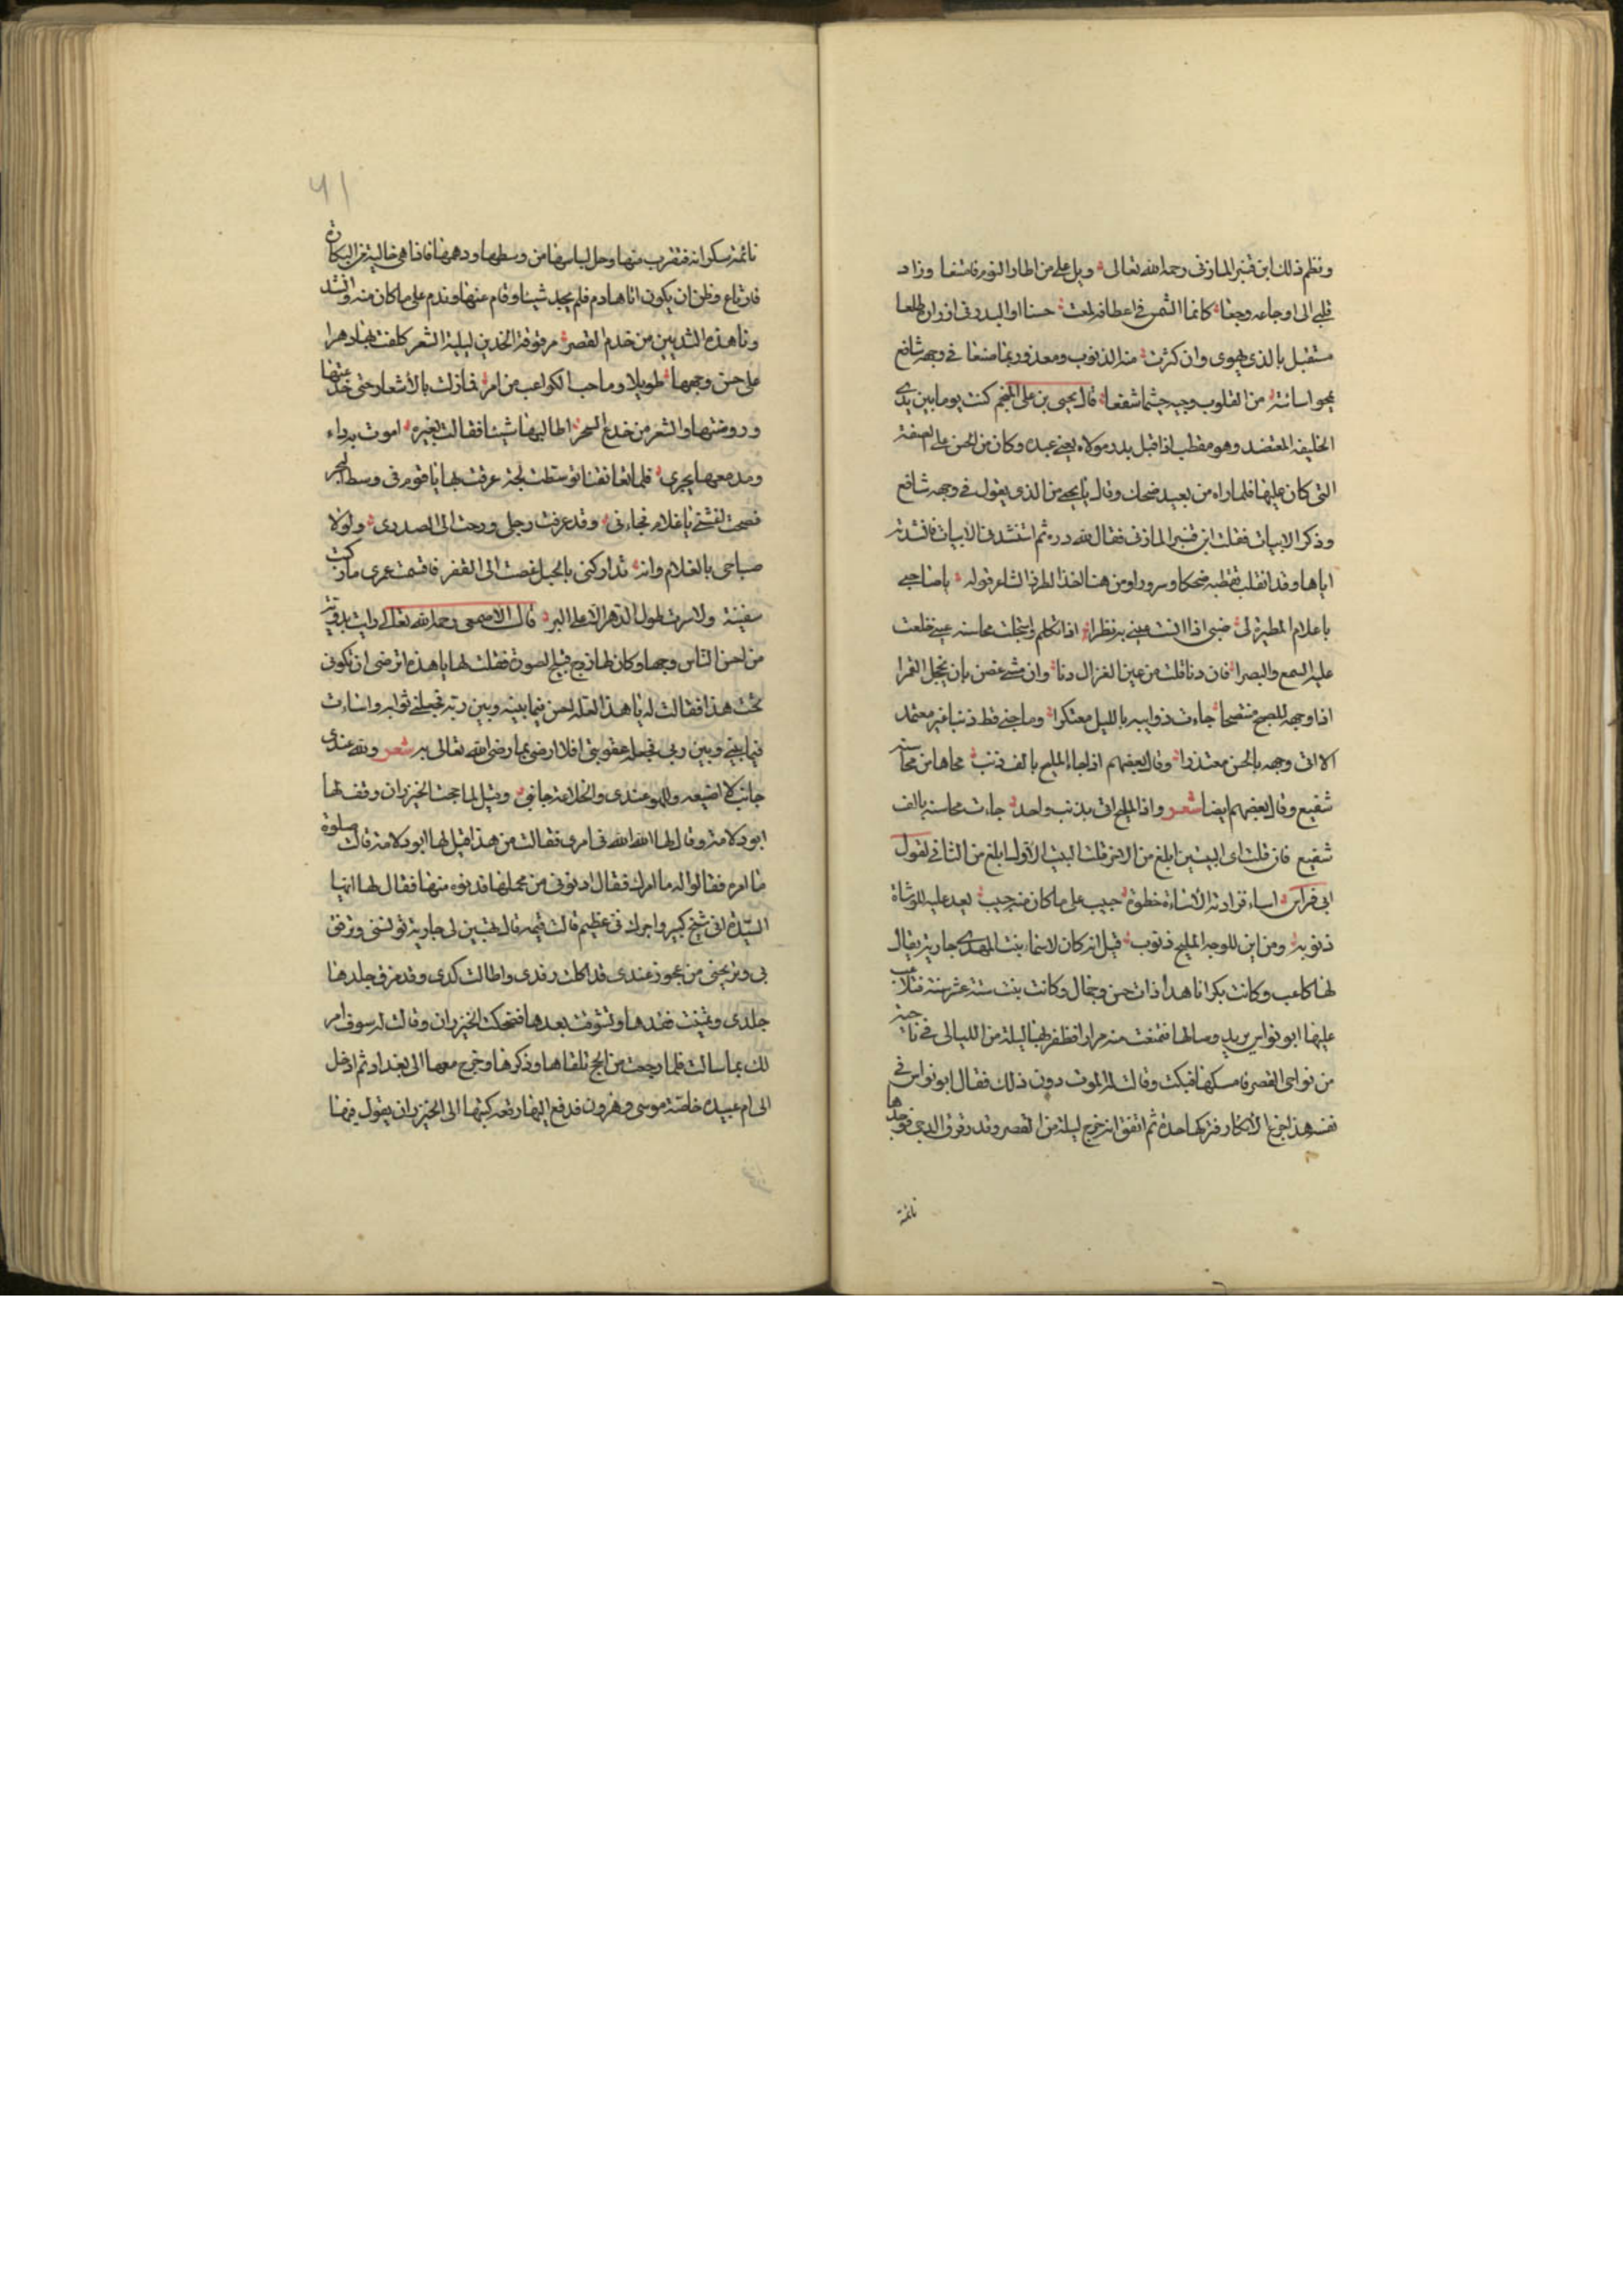 ونظم ذلك ابن قنبر المازني رحمه الله تعالى ويل على من اطار النوم فامتنعا وزاد
قلبي الى اوجاعه وجعا كانما الشمس في اعطافه لمعت حسنا او البدر في ازراره طلعا
مستقبل بالذي يهوى وان كثرت منه الذنوب ومعذور بما صنعا في وجهه شافع
يمحو اسائته من القلوب وجيه حيثما شفعا قال يحيى بن علي المنجم كنت يوما بين يدي
الخليفه المعتضد وهو مقطب اذ اقبل بدر مولاه يعني عبده وكان من الحسن على الصفة
التي كان عليها فلما راه من بعيد ضحك وقال يا يحيى من الذي يقول في وجهه شافع
وذكر الابيات فقلت ابن قنبر المازني فقال لله دره ثم استنشدني الابيات فانشدته
اياها وقد انقلب تقطبه ضحكا وسرورا ومن هنا اخذ الطرف الشاعر قوله
باعلام المطيرة لي اذا تكلم محاسنه عيني خلعت
عليه السمع والبصرا فان دنا قلت من عين الغزال دنا وان مشى غصن بان يخجل القمرا
اذا وجهه للصبح متضحا جاءت ذوايبه بالليل معتكرا وما جنى قط ذنبا غير معتمد
الا اتى وجهه بالحسن معتذرا وقال بعضهم اذا جاء المليح بالف ذنب محاها من محاسنه
شفيع وقال بعضهم ايضا شعر واذا المليح اتى بذنب واحد جاءت محاسنه بالف
شفيع فان قلت اي البيتين ابلغ من الاخر قلت البيت الاول ابلغ من الثاني لقول
ابي فراس اساء فزادته الاساءة حظوة حبيب على ما كان منه حبيب يعد عليه الوشاة
ذنوبه ومن اين للوجه المليح ذنوب قيل انه كان لاسماء بنت المهدي جارية يقال
لها كاعب وكانت بكرا ناهدا ذات حسن وجمال وكانت بنت ستة عشر سنة فتلاعب
عليها ابو نواس يريد وصالها فتمنعت منه مرارا فظفر بها ليلة من الليالي في ناحية
من نواحي القصر فامسكها فبكت وقالت له الموت دون ذلك فقال ابو نواس في
نفسه هذا جزع الابكار فتركها مدة ثم اتفق انه خرج ليلة من القصر وقد رقرق الدجى فوجدها
نائمة
٦١
نائمة سكرانه فتقرب منها وحل لباسها من وسطها ودهمها فاذا هي خالية من البكارة
فارتاع وظن ان يكون اتاها دم فلم يجد شيئا وقام عنها وندم على ما كان منه وانشد
وناهدة الثديين من خدم القصر مرقوقة الخدين ليلية الشعر كلفت بها دهرا
على حسن وجهها طويلا وما حب الكواعب من امر فما زلت بالأشعار حتى خدعتها
وروضتها والشعر من خدع السحر اطالبها شيئا فقالت بغيره اموت بداء
ودمعها يجري فلما تعانقنا توسطت لجة غرقت بها يا قوم في وسط البحر
فصحت اغثني يا غلام فجاءني وقد غرقت رجلي ورحت الى الصدر ولولا
صياحي بالغلام وانه تداركني بالحبل غصت الى القعر فاقسمت عمري ما ركبت
سفينة ولا سرت طول الدهر الا على البر قال الاصمعي رحمه الله تعالى رايت بدوية
من احسن الناس وجها وكان لها زوج قبيح الصورة فقلت لها يا هذه اترضى ان تكوني
تحت هذا فقالت له يا هذا لعله احسن فيما بينه وبين ربه فجعلني ثوابه واساءت
فيما بيني وبين ربي فجعله عقوبتي افلا ارضى بما رضى الله تعالى به شعر ولله عندي
جانب لا اضيعه واللهو عندي والخلاعة جانب وقيل لما حجت الخيزران وقف لها
ابو دلامة وقال لها الله الله في امري فقالت من هذا قيل لها ابو دلامة قالت سلوه
ما امره فقالوا له ما امرك فقال ادنوني من محملها فدنوه منها فقال لها ايتها
السيدة اني شيخ كبير واجرك في عظيم قالت فمه قال تهبين لي جارية تؤنسني وترفق
بي وتريحني من عجوز عندي قد اكلت رفدي واطالت كدي وقد مزق جلدها
جلدي وتمنيت فقدها وتشوقت بعدها فضحكت الخيزران وقالت له سوف امر
لك بما سالت فلما رجعت من الحج تلقاها وذكرها وخرج معها الى بغداد ثم ادخل
الى ام عبيده خاصة موسى وهرون فدفع اليها رقعة كتبها الى الخيزران يقول فيها